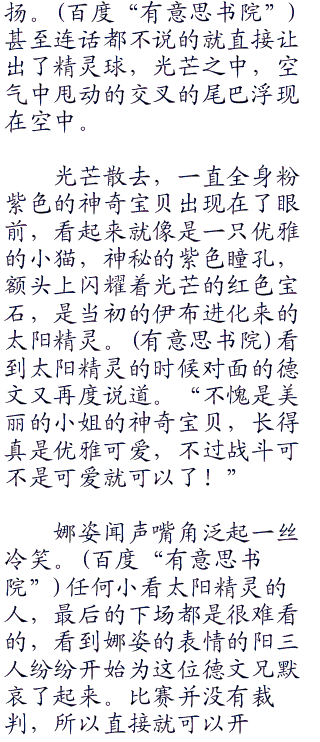 扬。(百度“有意思书院”)
甚至连话都不说的就直接让
出了精灵球，光芒之中，空
气中甩动的交叉的尾巴浮现
在空中。
光芒散去，一直全身粉
紫色的神奇宝贝出现在了眼
前，看起来就像是一只优雅
的小猫，神秘的紫色瞳孔，
额头上闪耀着光芒的红色宝
石，是当初的伊布进化来的
太阳精灵。(有意思书院)看
到太阳精灵的时候对面的德
文又再度说道。“不愧是美
丽的小姐的神奇宝贝，长得
真是优雅可爱，不过战斗可
不是可爱就可以了！”
娜姿闻声嘴角泛起一丝
冷笑。(百度“有意思书
院”)任何小看太阳精灵的
人，最后的下场都是很难看
的，看到娜姿的表情的阳三
人纷纷开始为这位德文兄默
哀了起来。比赛并没有裁
判，所以直接就可以开